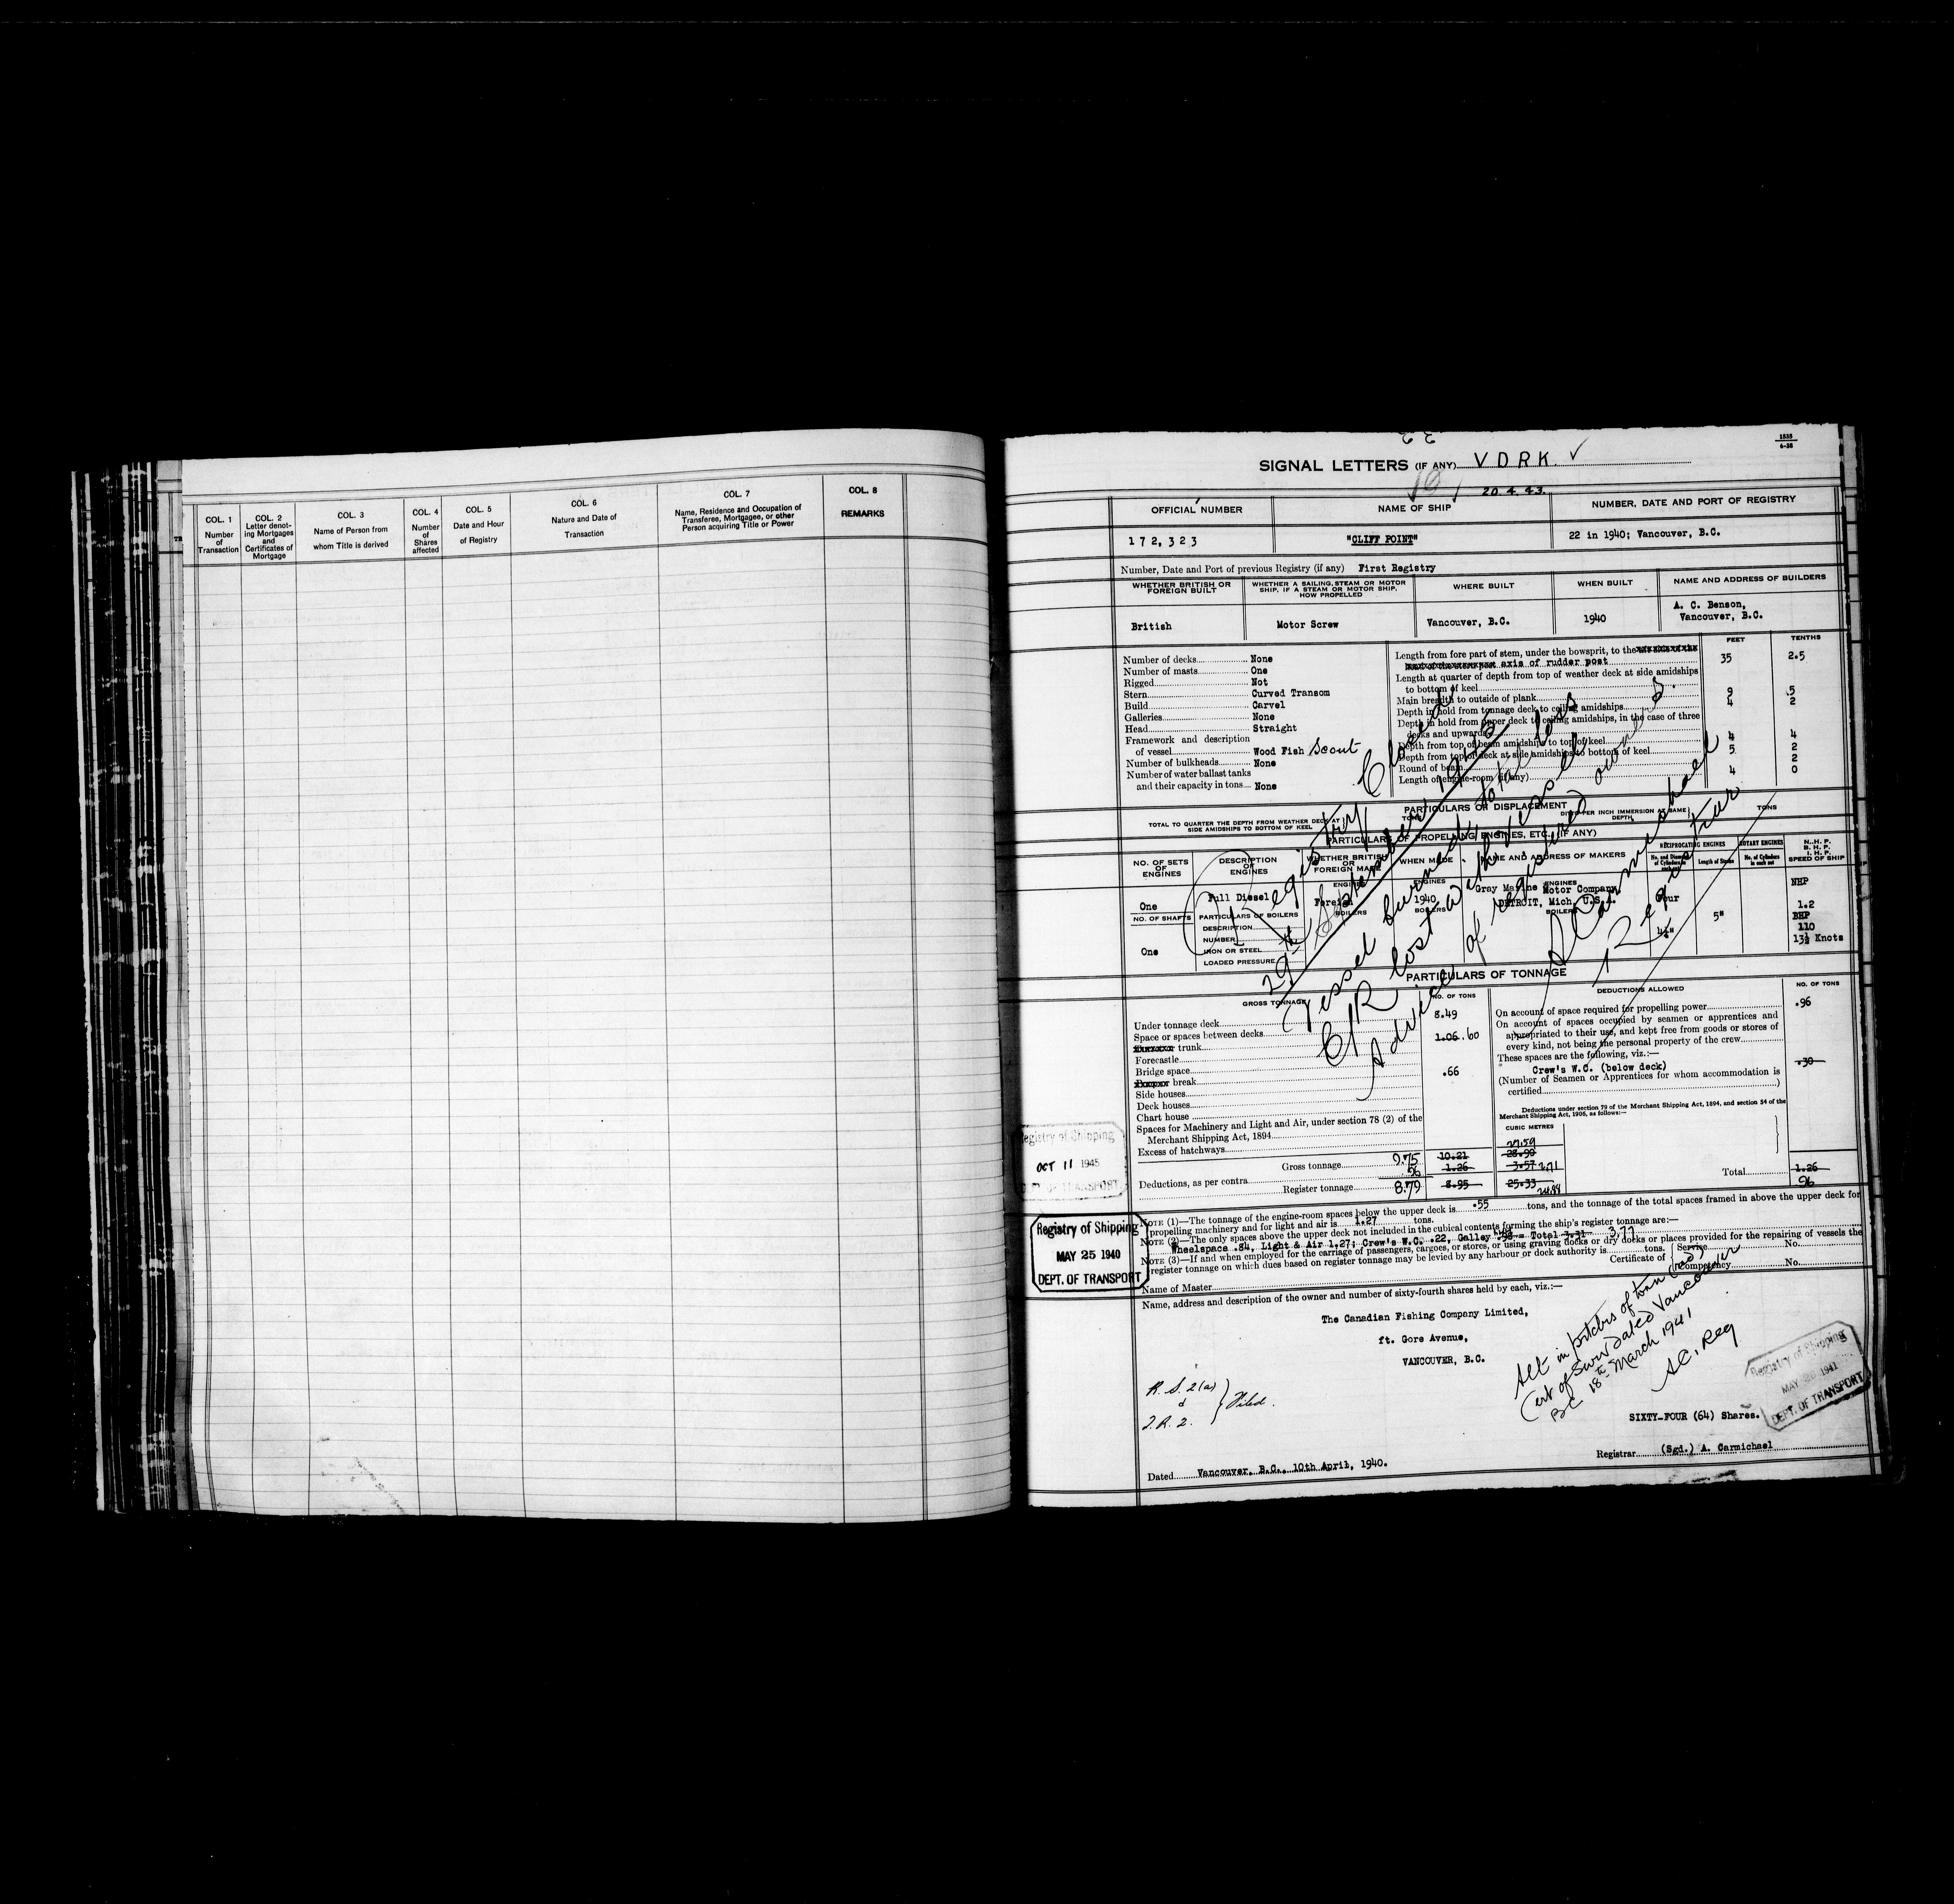 COL. 1
Number
of
Transaction
COL. 2
Letter denot-
ing Mortgages
and
Certificates of
Mortgage
COL. 3
Name of Person from
whom Title is derived
COL. 4
Number
of
Shares
affected
COL. 5
Date and Hour
of Registry
COL. 6
Nature and Date of
Transaction
COL. 7
Name, Residence and Occupation of
Transferee, Mortgagee, or other
Person acquiring Title or Power
COL. 8
REMARKS
1535
6-38
SIGNAL LETTERS (IF ANY) V D R K. ✓
20.4.43.
OFFICIAL NUMBER
NAME OF SHIP
NUMBER, DATE AND PORT OF REGISTRY
172,323
"CLIFF POINT"
22 in 1940; Vancouver, B.C.
Number, Date and Port of previous Registry (if any) First Registry
WHETHER BRITISH OR
FOREIGN BUILT
WHETHER A SAILING, STEAM OR MOTOR
SHIP, IF A STEAM OR MOTOR SHIP,
HOW PROPELLED
WHERE BUILT
WHEN BUILT
NAME AND ADDRESS OF BUILDERS
British
Motor Screw
Vancouver, B.C.
1940
A. C. Benson,
Vancouver, B.C.
Number of decks None
Number of masts One
Rigged Not
Stern Curved Transom
Build Carvel
Galleries None
Head Straight
Framework and description
of vessel Wood Fish Scout
Number of bulkheads None
Number of water ballast tanks
and their capacity in tons None
FEET
TENTHS
Length from fore part of stem, under the bowsprit, to the
axis of rudder post 35 2.5
Length at quarter of depth from top of weather deck at side amidships
to bottom of keel
Main breadth to outside of plank 9 .5
Depth in hold from tonnage deck to ceiling amidships 4 2
Depth in hold from upper deck to ceiling amidships, in the case of three
decks and upwards
Depth from top of beam amidships to top of keel 4 4
Depth from top of deck at side amidships to bottom of keel 5 2
Round of beam 2
Length of engine-room (if any) 4 0
Registry Closed
29th September 1945
Vessel burned, total loss
C/R lost with vessel.
Advice of registered owners.
A Carmichael
Registrar
PARTICULARS OF DISPLACEMENT
TOTAL TO QUARTER THE DEPTH FROM WEATHER DECK AT
SIDE AMIDSHIPS TO BOTTOM OF KEEL
TONS
DITTO PER INCH IMMERSION AT SAME
DEPTH
TONS
PARTICULARS OF PROPELLING ENGINES, ETC. (IF ANY)
NO. OF SETS
OF
ENGINES
DESCRIPTION
OF
ENGINES
WHETHER BRITISH
OR
FOREIGN MADE
WHEN MADE
NAME AND ADDRESS OF MAKERS
RECIPROCATING ENGINES
ROTARY ENGINES
Length of Stroke
N.H.P.
B.H.P.
I.H.P.
SPEED OF SHIP
One
NO. OF SHAFTS
One
Full Diesel
PARTICULARS OF BOILERS
DESCRIPTION
NUMBER
IRON OR STEEL
LOADED PRESSURE
ENGINES
Foreign
BOILERS
ENGINES
1940
BOILERS
ENGINES
Gray Marine Motor Company
DETROIT, Mich. U.S.A.
BOILERS
Four
4¼"
5"
NHP
1.2
BHP
110
13½ Knots
PARTICULARS OF TONNAGE
GROSS TONNAGE
NO. OF TONS
Under tonnage deck 8.49
Space or spaces between decks
trunk 1.06 .60
Forecastle
Bridge space
break .66
Side houses
Deck houses
Chart house
Spaces for Machinery and Light and Air, under section 78 (2) of the
Merchant Shipping Act, 1894
Excess of hatchways
Gross tonnage 9.75 10.21
Deductions, as per contra .96 1.26
Register tonnage 8.79 8.95
CUBIC METRES
27.59
28.90
3.57 2.71
25.33
24.88
DEDUCTIONS ALLOWED
NO. OF TONS
On account of space required for propelling power .96
On account of spaces occupied by seamen or apprentices and
appropriated to their use, and kept free from goods or stores of
every kind, not being the personal property of the crew
These spaces are the following, viz.:—
Crew's W.C. (below deck) .30
(Number of Seamen or Apprentices for whom accommodation is
certified )
Deductions under section 79 of the Merchant Shipping Act, 1894, and section 54 of the
Merchant Shipping Act, 1906, as follows:—
Total 1.26
96
Registry of Shipping
OCT 11 1945
DEPT. OF TRANSPORT
Registry of Shipping
MAY 25 1940
DEPT. OF TRANSPORT
NOTE (1)—The tonnage of the engine-room spaces below the upper deck is .55 tons, and the tonnage of the total spaces framed in above the upper deck for
propelling machinery and for light and air is 1.27 tons.
NOTE (2)—The only spaces above the upper deck not included in the cubical contents forming the ship's register tonnage are:—
Wheelspace .84, Light & Air 1.27; Crew's W.C. .22, Galley .98 = Total 3.31 3.77
NOTE (3)—If and when employed for the carriage of passengers, cargoes, or stores, or using graving docks or dry docks or places provided for the repairing of vessels the
register tonnage on which dues based on register tonnage may be levied by any harbour or dock authority is tons.
Certificate of Service No.
Competency No.
Name of Master
Name, address and description of the owner and number of sixty-fourth shares held by each, viz.:—
The Canadian Fishing Company Limited,
ft. Gore Avenue,
VANCOUVER, B.C.
R. S. 2(a)
&
J.R. 2.
Filed.
Cert of Surv dated Vancouver
BC 18th March 1941
AC, Reg
Registry of Shipping
MAY 1941
DEPT. OF TRANSPORT
SIXTY-FOUR (64) Shares.
Registrar (Sgd.) A. Carmichael
Dated Vancouver, B.C., 10th April, 1940.